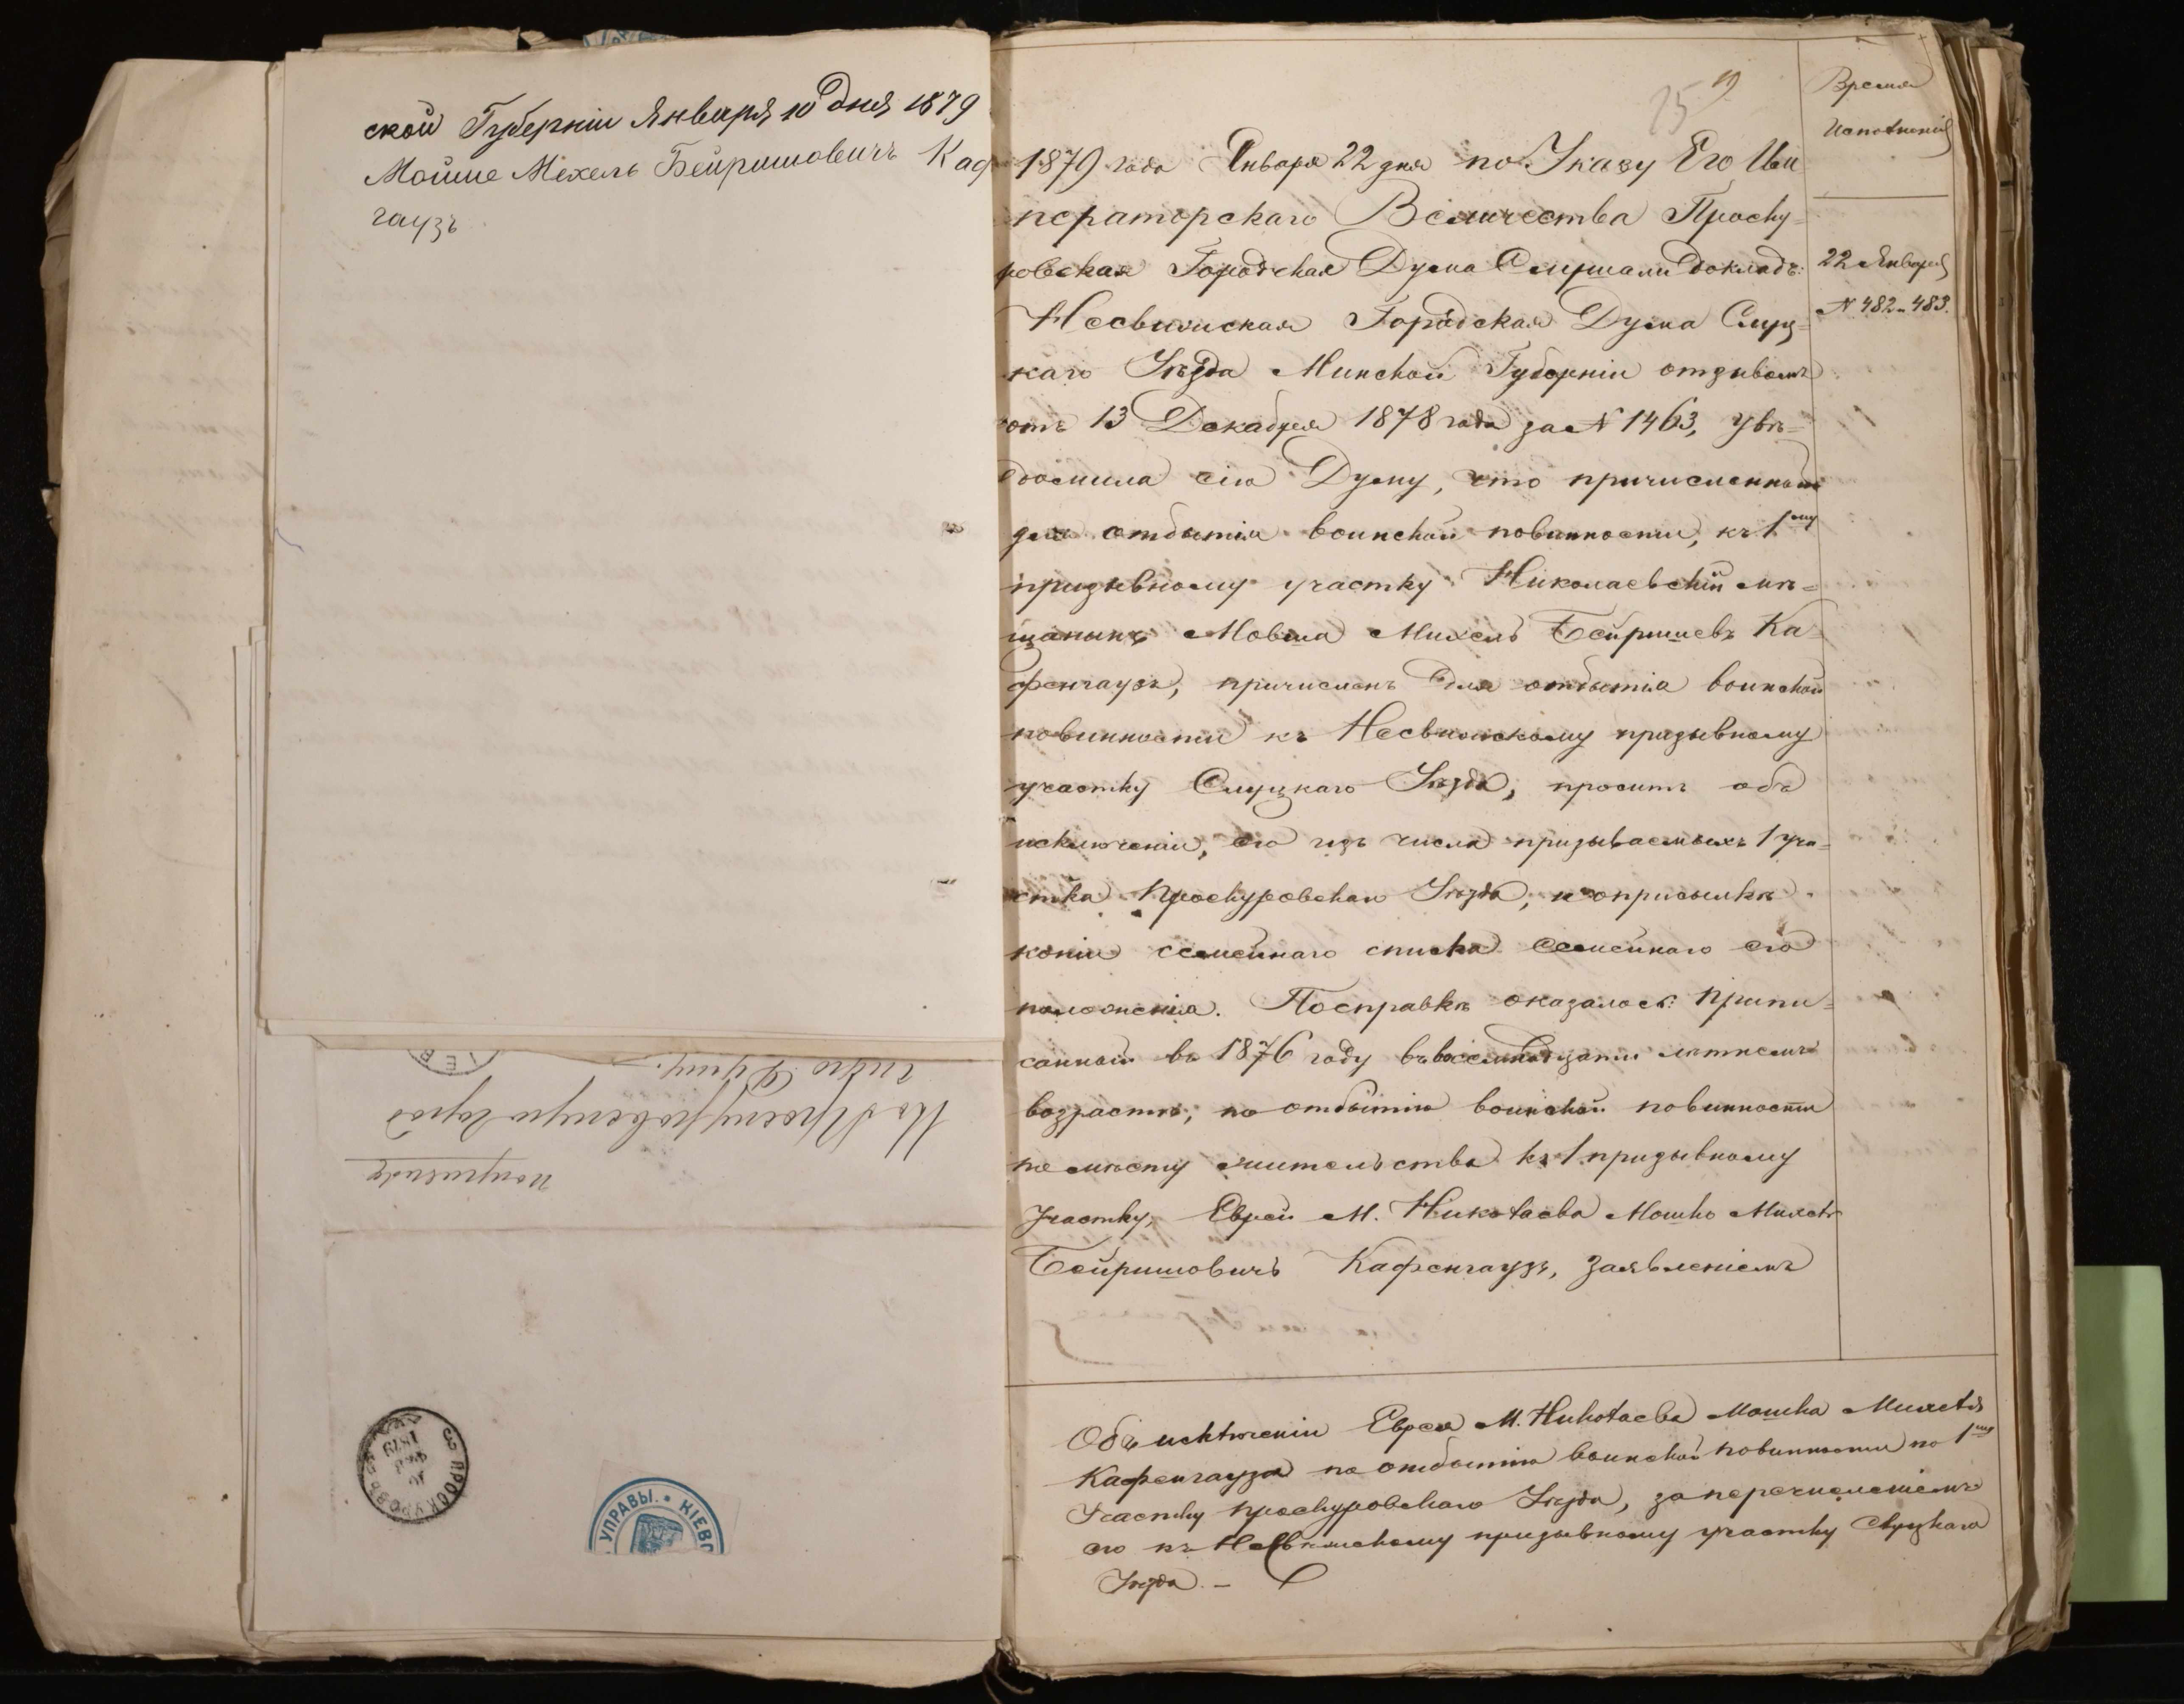 ской Губерніи Января 10 дня 1879
Мойше Мехель Бейришовичъ Каф
гаузъ
25 19
Время
Исполненія
22 Января
№ 482 и 483.
1879 года Января 22 дня по Указу Его Им
ператорскаго Величества Проску-
ровская Городская Дума Слушали докладъ:
Несвижская Городская Дума Слуц-
каго Уѣзда Минской Губерніи отзывомъ
отъ 13 Декабря 1878 года за № 1463, увѣ-
домила сію Думу, что причисленный
для отбытія воинской повинности, къ 1му
призывному участку Николаевскій мѣ-
щанинъ Мовша Михель Бейришевъ Ка-
фенгаузъ, причисленъ для отбытія воинской
повинности къ Несвижскому призывному
участку Слуцкаго Уѣзда, проситъ объ
исключеніи, его изъ числа призываемыхъ 1 уча-
стка Проскуровскаго Уѣзда, и о присылкѣ
копіи семейнаго списка семейнаго его
положенія. По справкѣ оказалось: припи-
санный въ 1876 году въ восемнадцати лѣтнемъ
возрастѣ, по отбытію воинской повинности
по мѣсту жительства къ 1 призывному
Участку, Еврей М. Николаева Мошко Михель
Бейришовичъ Кафенгаузъ, заявленіемъ
Объ исключеніи Еврея М. Николаева Мошка Михеля
Кафенгауза по отбытію воинской повинности по 1му
Участку Проскуровскаго Уѣзда, за перечисленіемъ
его къ Несвижскому призывному участку Слуцкаго
Уѣзда. –
Въ Проскуровскую Город
скую Думу.
ПРОСКУРОВЪ
1879
УПРАВЫ. • КІЕВС